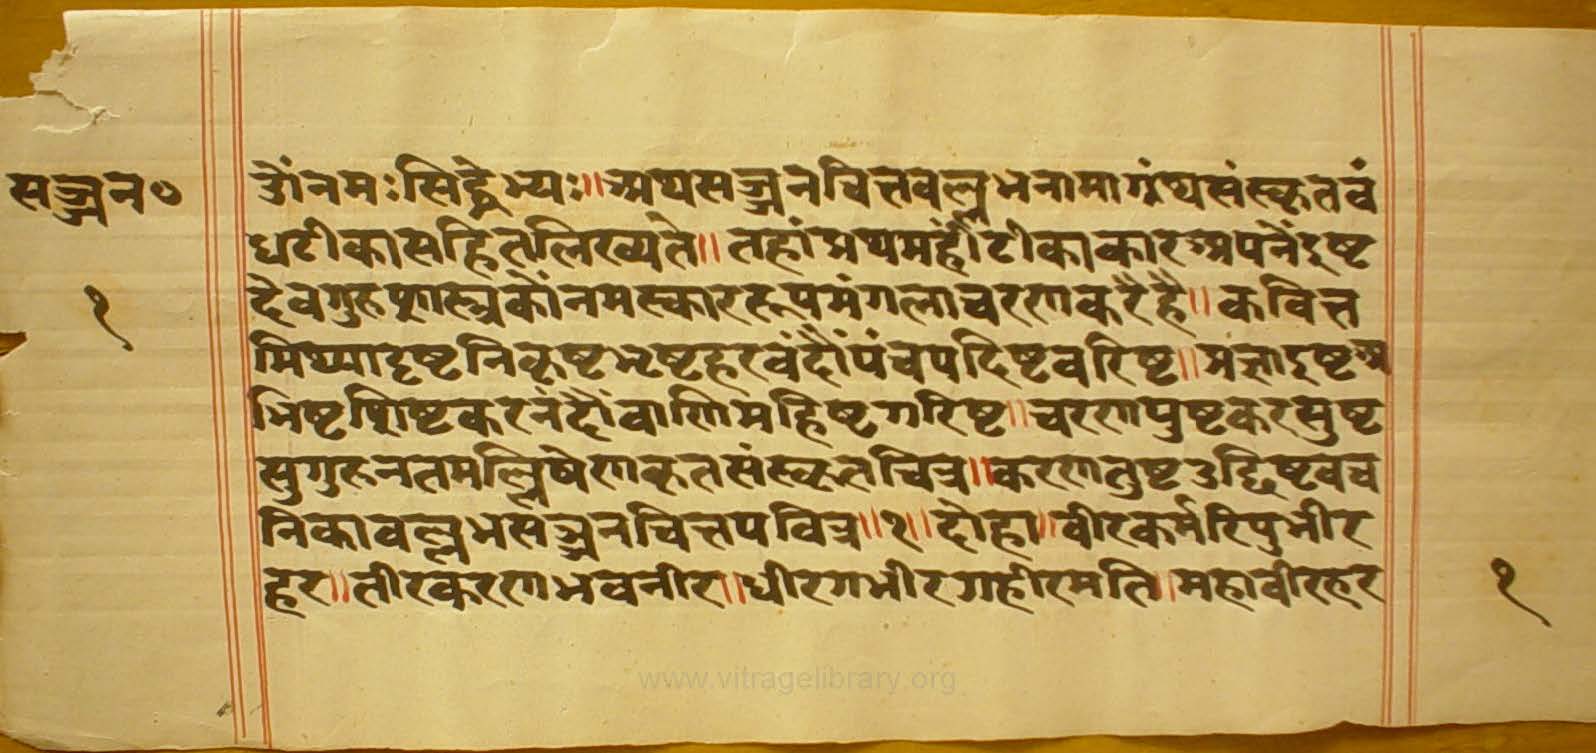 सज्जन०
१
ॐ नमः सिद्धेभ्यः॥ अथ सज्जनचित्तवल्लभनामा ग्रंथ संस्कृत वं
ध टीका सहित लिख्यते॥ तहां प्रथमहीं टीकाकार अपनें इष्ट
देव गुरु शास्त्र कौं नमस्कार रूप मंगलाचरण करै है॥ कवित्त
मिथ्यादृष्ट निकृष्ट भृष्ट हर वंदौं पंच पदिष्ट वरिष्ट॥ प्रज्ञादृष्ट अ
भिष्ट शिष्ट कर नंदौं वाणि महिष्ट गरिष्ट॥ चरण पुष्ट कर सुष्ट
सुगुरु नत मल्लिषेण कृत संस्कृत चित्र॥ करण तुष्ट उद्दिष्ट वच
निका वल्लभ सज्जन चित्त पवित्र॥१॥ दोहा॥ वीर कर्म रिपु भीर
हर॥ तीर करण भव नीर॥ धीर गभीर गहीर मति॥ महावीर हर
१
www.vitragelibrary.org